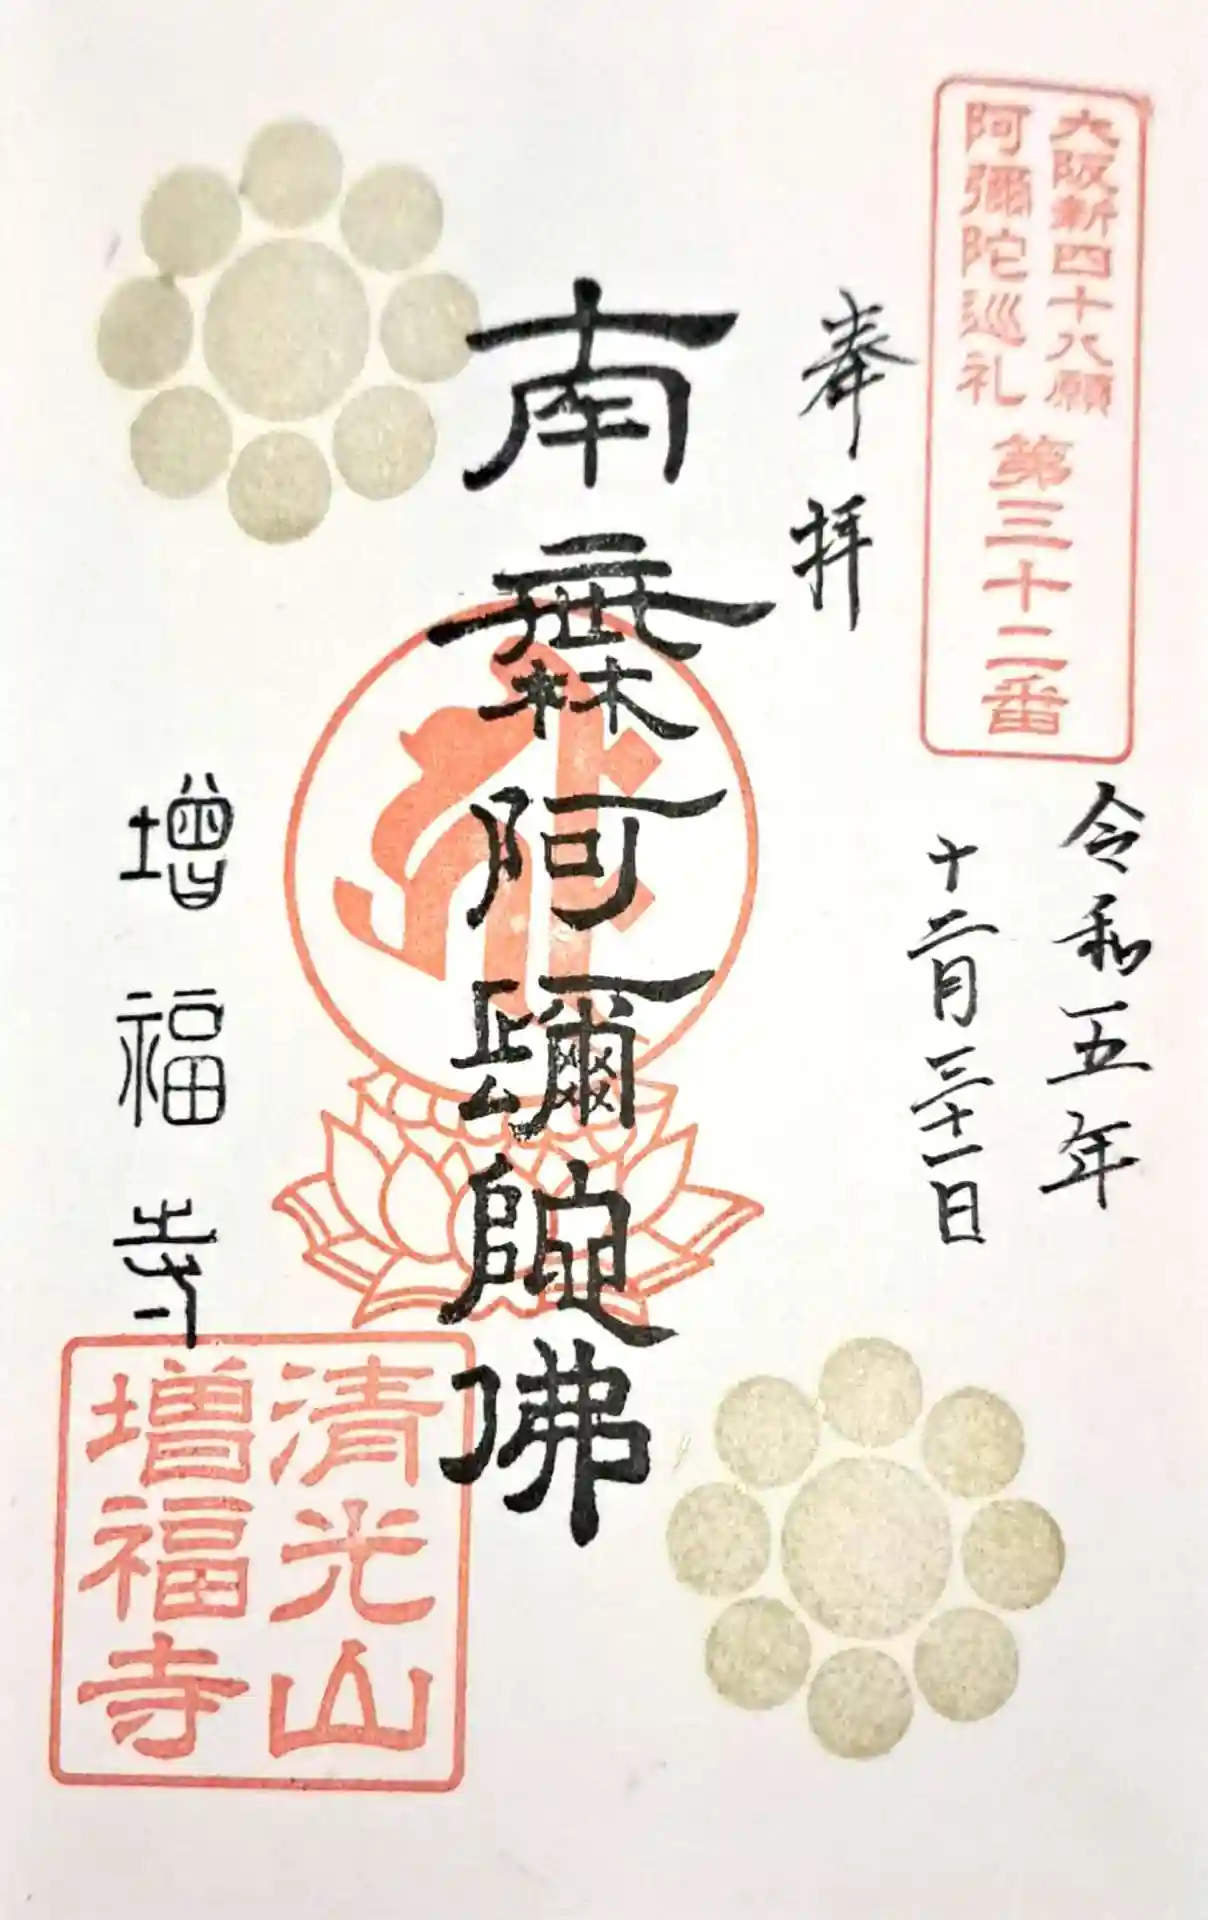 大阪新四十八願
阿彌陀巡礼
第三十二番
令和五年
十二月三十一日
奉拝
南無阿彌陀佛
増福寺
清光山
増福寺